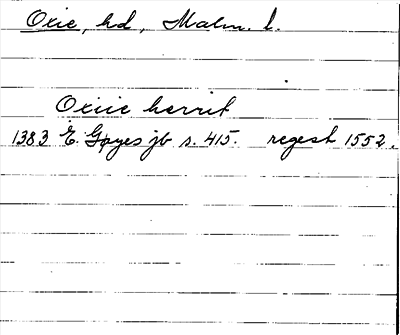 Oxie, hd, Malm. l.
Oxiie herrit
1383 E. Gøyes jb s. 415. regest 1552.